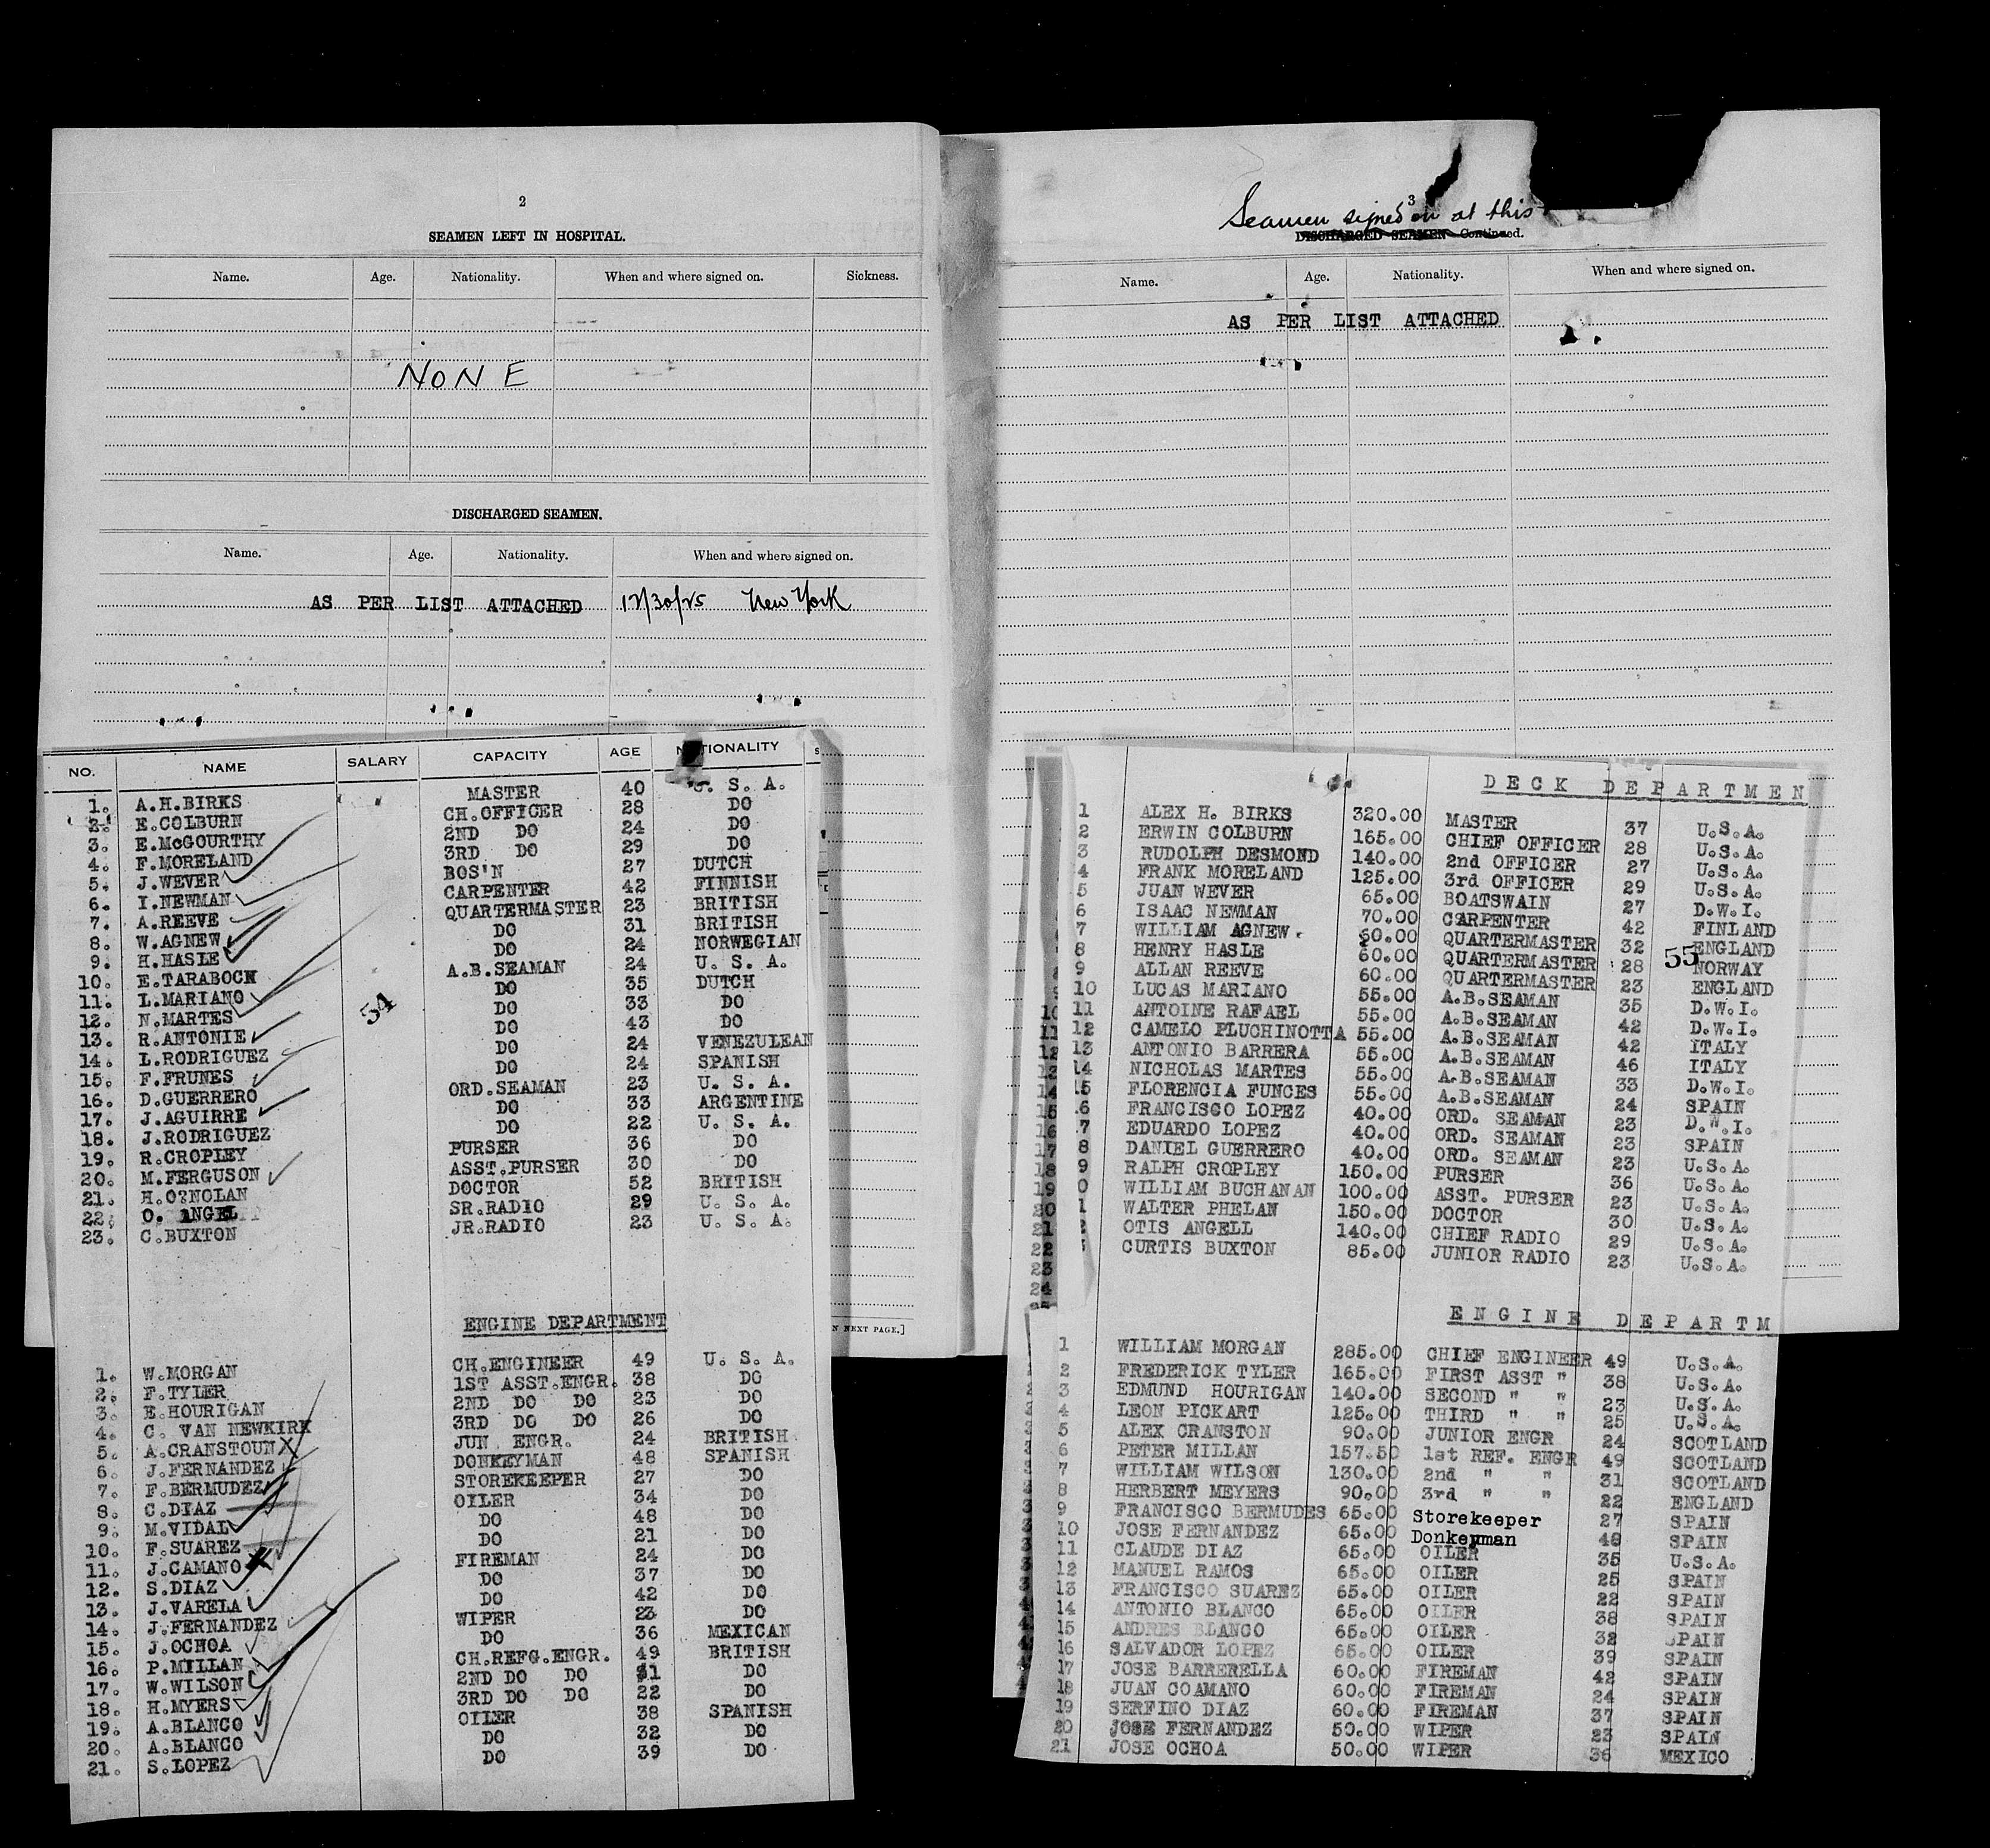 2
SEAMEN LEFT IN HOSPITAL.
Name. Age. Nationality. When and where signed on. Sickness.
NONE
DISCHARGED SEAMEN.
Name. Age. Nationality. When and where signed on.
AS PER LIST ATTACHED 12/30/25 New York
NO. NAME SALARY CAPACITY AGE NATIONALITY
1. A.H.BIRKS MASTER 40 U. S. A.
2. E.COLBURN CH.OFFICER 28 DO
3. E.McGOURTHY 2ND DO 24 DO
4. F.MORELAND 3RD DO 29 DO
5. J.WEVER BOS'N 27 DUTCH
6. I.NEWMAN CARPENTER 42 FINNISH
7. A.REEVE QUARTERMASTER 23 BRITISH
8. W.AGNEW DO 31 BRITISH
9. H.HASLE DO 24 NORWEGIAN
10. E.TARABOCH A.B.SEAMAN 24 U. S. A.
11. L.MARIANO DO 35 DUTCH
12. N.MARTES DO 33 DO
13. R.ANTONIE DO 43 DO
14. L.RODRIGUEZ DO 24 VENEZULEAN
15. F.FRUNES DO 24 SPANISH
16. D.GUERRERO ORD.SEAMAN 23 U. S. A.
17. J.AGUIRRE DO 33 ARGENTINE
18. J.RODRIGUEZ DO 22 U. S. A.
19. R.CROPLEY PURSER 36 DO
20. M.FERGUSON ASST.PURSER 30 DO
21. H.O'NOLAN DOCTOR 52 BRITISH
22. O. ANGEL SR.RADIO 29 U. S. A.
23. C.BUXTON JR.RADIO 23 U. S. A.
54
ENGINE DEPARTMENT
1. W.MORGAN CH.ENGINEER 49 U. S. A.
2. F.TYLER 1ST ASST.ENGR. 38 DO
3. E.HOURIGAN 2ND DO DO 23 DO
4. C. VAN NEWKIRK 3RD DO DO 26 DO
5. A.CRANSTOUN JUN. ENGR. 24 BRITISH
6. J.FERNANDEZ DONKEYMAN 48 SPANISH
7. F.BERMUDEZ STOREKEEPER 27 DO
8. C.DIAZ OILER 34 DO
9. M.VIDAL DO 48 DO
10. F.SUAREZ DO 21 DO
11. J.CAMANO FIREMAN 24 DO
12. S.DIAZ DO 37 DO
13. J.VARELA DO 42 DO
14. J.FERNANDEZ WIPER 23 DO
15. J.OCHOA DO 36 MEXICAN
16. P.MILLAN CH.REFG.ENGR. 49 BRITISH
17. W.WILSON 2ND DO DO 31 DO
18. H.MYERS 3RD DO DO 22 DO
19. A.BLANCO OILER 38 SPANISH
20. A.BLANCO DO 32 DO
21. S.LOPEZ DO 39 DO
N NEXT PAGE.]
3
Seamen signed on at this
DISCHARGED SEAMEN Continued.
Name. Age. Nationality. When and where signed on.
AS PER LIST ATTACHED
DECK DEPARTMEN
1 ALEX H. BIRKS 320.00 MASTER 37 U.S.A.
2 ERWIN COLBURN 165.00 CHIEF OFFICER 28 U.S.A.
3 RUDOLPH DESMOND 140.00 2nd OFFICER 27 U.S.A.
4 FRANK MORELAND 125.00 3rd OFFICER 29 U.S.A.
5 JUAN WEVER 65.00 BOATSWAIN 27 D.W.I.
6 ISAAC NEWMAN 70.00 CARPENTER 42 FINLAND
7 WILLIAM AGNEW. 60.00 QUARTERMASTER 32 ENGLAND
8 HENRY HASLE 60.00 QUARTERMASTER 28 NORWAY
55
9 ALLAN REEVE 60.00 QUARTERMASTER 23 ENGLAND
10 LUCAS MARIANO 55.00 A.B.SEAMAN 35 D.W.I.
11 ANTOINE RAFAEL 55.00 A.B.SEAMAN 42 D.W.I.
12 CAMELO PLUCHINOTTA 55.00 A.B.SEAMAN 42 ITALY
13 ANTONIO BARRERA 55.00 A.B.SEAMAN 46 ITALY
14 NICHOLAS MARTES 55.00 A.B.SEAMAN 33 D.W.I.
15 FLORENCIA FUNCES 55.00 A.B.SEAMAN 24 SPAIN
6 FRANCISCO LOPEZ 40.00 ORD. SEAMAN 23 D.W.I.
7 EDUARDO LOPEZ 40.00 ORD. SEAMAN 23 SPAIN
8 DANIEL GUERRERO 40.00 ORD. SEAMAN 23 U.S.A.
9 RALPH CROPLEY 150.00 PURSER 36 U.S.A.
0 WILLIAM BUCHANAN 100.00 ASST. PURSER 23 U.S.A.
1 WALTER PHELAN 150.00 DOCTOR 30 U.S.A.
OTIS ANGELL 140.00 CHIEF RADIO 29 U.S.A.
CURTIS BUXTON 85.00 JUNIOR RADIO 23 U.S.A.
ENGINE DEPARTM
1 WILLIAM MORGAN 285.00 CHIEF ENGINEER 49 U.S.A.
2 FREDERICK TYLER 165.00 FIRST ASST " 38 U.S.A.
3 EDMUND HOURIGAN 140.00 SECOND " " 23 U.S.A.
4 LEON PICKART 125.00 THIRD " " 25 U.S.A.
5 ALEX CRANSTON 90.00 JUNIOR ENGR 24 SCOTLAND
6 PETER MILLAN 157.50 1st REF. ENGR 49 SCOTLAND
7 WILLIAM WILSON 130.00 2nd " " 31 SCOTLAND
8 HERBERT MEYERS 90.00 3rd " " 22 ENGLAND
9 FRANCISCO BERMUDES 65.00 Storekeeper 27 SPAIN
10 JOSE FERNANDEZ 65.00 Donkeyman 48 SPAIN
11 CLAUDE DIAZ 65.00 OILER 35 U.S.A.
12 MANUEL RAMOS 65.00 OILER 25 SPAIN
13 FRANCISCO SUAREZ 65.00 OILER 22 SPAIN
14 ANTONIO BLANCO 65.00 OILER 38 SPAIN
15 ANDRES BLANCO 65.00 OILER 32 SPAIN
16 SALVADOR LOPEZ 65.00 OILER 39 SPAIN
17 JOSE BARRERELLA 60.00 FIREMAN 42 SPAIN
18 JUAN COAMANO 60.00 FIREMAN 24 SPAIN
19 SERFINO DIAZ 60.00 FIREMAN 37 SPAIN
20 JOSE FERNANDEZ 50.00 WIPER 23 SPAIN
21 JOSE OCHOA 50.00 WIPER 36 MEXICO